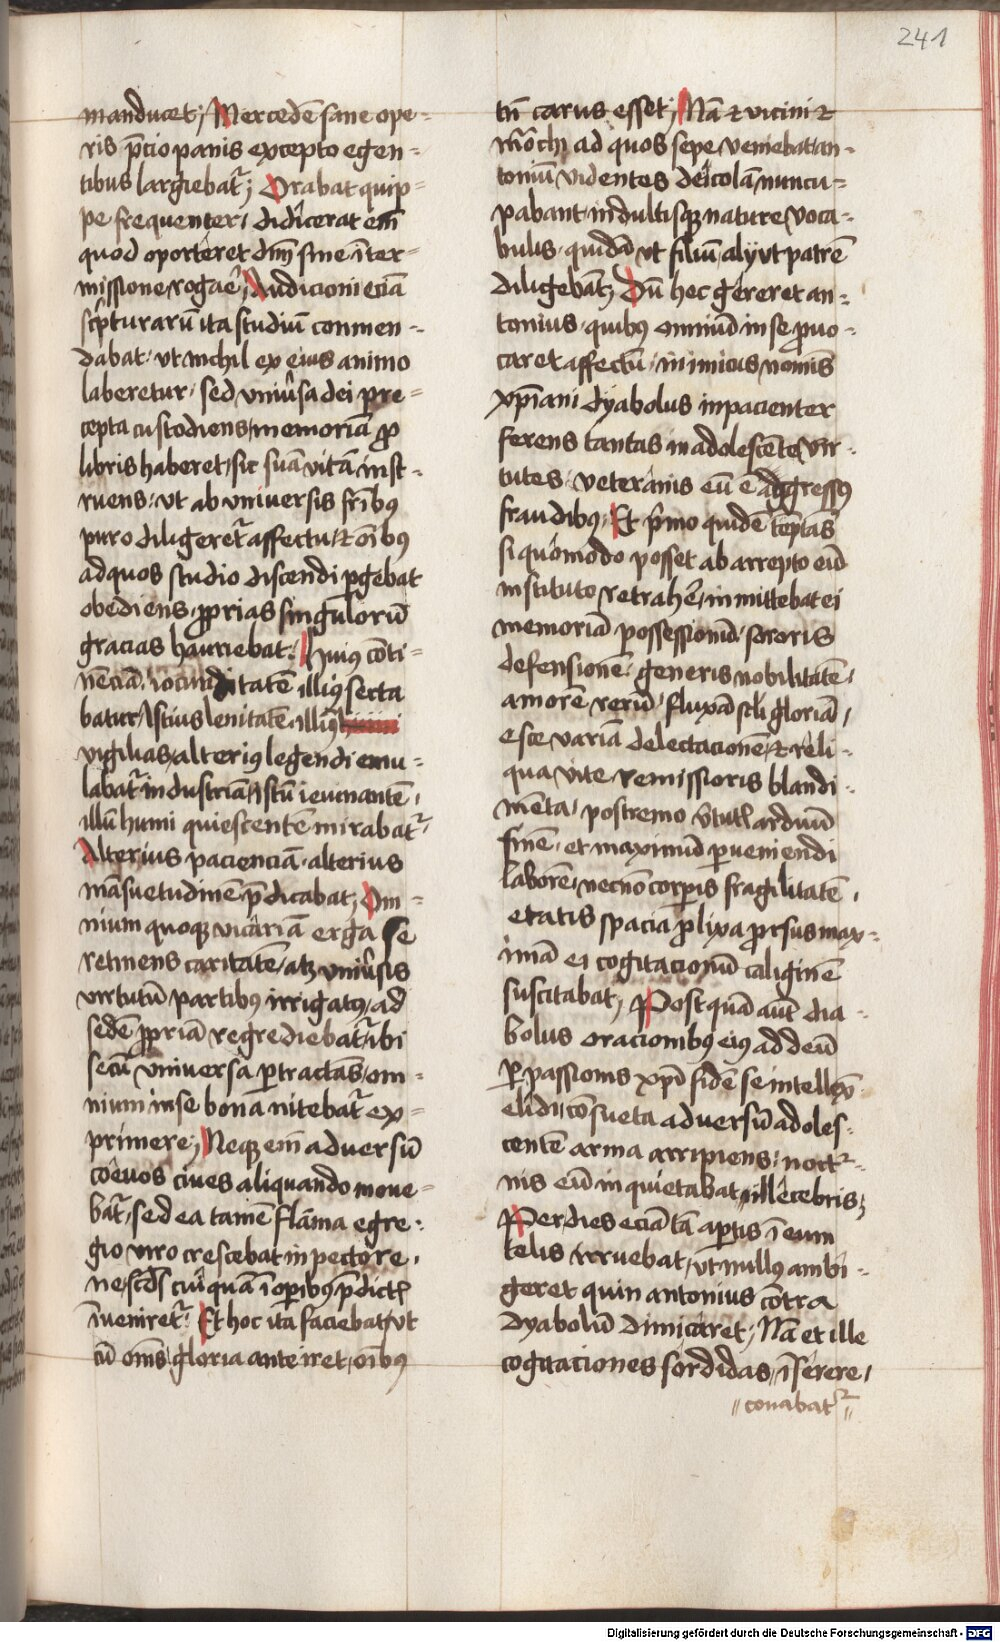 241
manducet; Mercedē sane ope-
ris p̄cio panis excepto egen-
tibus largiebat᷑; Orabat quip-
pe frequenter, didicerat em̄
quod oporteret dm̄ sine īter-
missione rogare; Audicioni eciā
sc̄pturarū ita studiū conmen-
dabat, ut nichil ex eius animo
laberetur, sed vniu̓sa dei pre-
cepta custodiens, memoriā ꝓ
libris haberet, sic suā vitā inst-
ruens, ut ab universis fr̄ibꝯ
puro diligeret᷑ affectu, et oībꝯ
ad quos studio discendi ꝑgebat
obediens, ꝓprias singulorū
gracias hauriebat. Huiꝯ cōti-
nēciā, iocunditatē illiꝯ secta
batur, Istius lenitatē, illiꝯ
vigilias, alteriꝯ legendi emu-
labat᷑ industriā, istū ieiunantē,
illū humi quiescentē mirabat᷑
Alterius pacienciā, alterius
māsuetudinē p̄dicabat; Om-
nium quoqꝫ vicariā erga se
retinens caritatē, atqꝫ vniu̓sis
virtutū partibꝯ irrigatꝯ, ad
sedē ꝓpriā regrediebat᷑, ibi
secū universa ꝑtractās, om-
nium in se bona nitebat᷑ ex-
primere; Neqꝫ em̄ adversū
coevos cives aliquando move-
bat᷑, sed ea tamē flāma egre-
gio viro crescebat in pectore,
ne scd̄s cuiquā ī oꝑibꝯ p̄dict᷑
īveniret᷑. Et hoc ita faciebat, ut
cū om̄s gloria anteiret, oībꝯ
tn̄ carus esset; Nā et vicini et
mōchi ad quos sepe veniebat an-
toniū videntes deicolā nuncu-
pabant, indultisqꝫ nature voca-
bulis, quidā ut filiū, alij ut patrē
diligebāt; Dū hec gereret an-
tonius, quibꝯ omniū in se ꝓvo-
caret affectū, inimicus nomīs
xp̄iani dyabolus inpacienter
ferens tantas in adolescēte vir-
tutes, veteranis eū ē aggressꝯ
fraudibꝯ, Et p̄mo quidē tēptās
si quomodo posset ab arrepto eū
instituto retrahe̓, inmittebat ei
memoriā possessionū, sororis
defensionē, generis nobilitatē,
amorē rerū, fluxā sc̄li gloriā,
esce variā delectacionē, et reli-
qua vite remissioris blandi-
mēta, postremo v̓tut᷑ arduū
finē, et maximū ꝑveniendi
laborē, necnō corꝑis fragilitatē,
etatis spacia ꝓlixa, ꝓrsus max-
imā ei cogitacionū caliginē
suscitabat; Postquā aūt dia-
bolus oracionibꝯ eiꝯ ad deū
ꝑ passionis xp̄i fidē se intellex̄
elidi, cōsueta adversū adoles-
centē arma arripiens, noctᷓ-
nis eū inquietabat illecebris;
Per dies eciā tā aꝑtis ī eum
telis irruebat, ut nullꝯ ambi-
geret quin antonius cōtra
dyabolū dimicaret; Nā et ille
cogitaciones sordidas, īserere,
conabat᷑
Digitalisierung gefördert durch die Deutsche Forschungsgemeinschaft - DFG